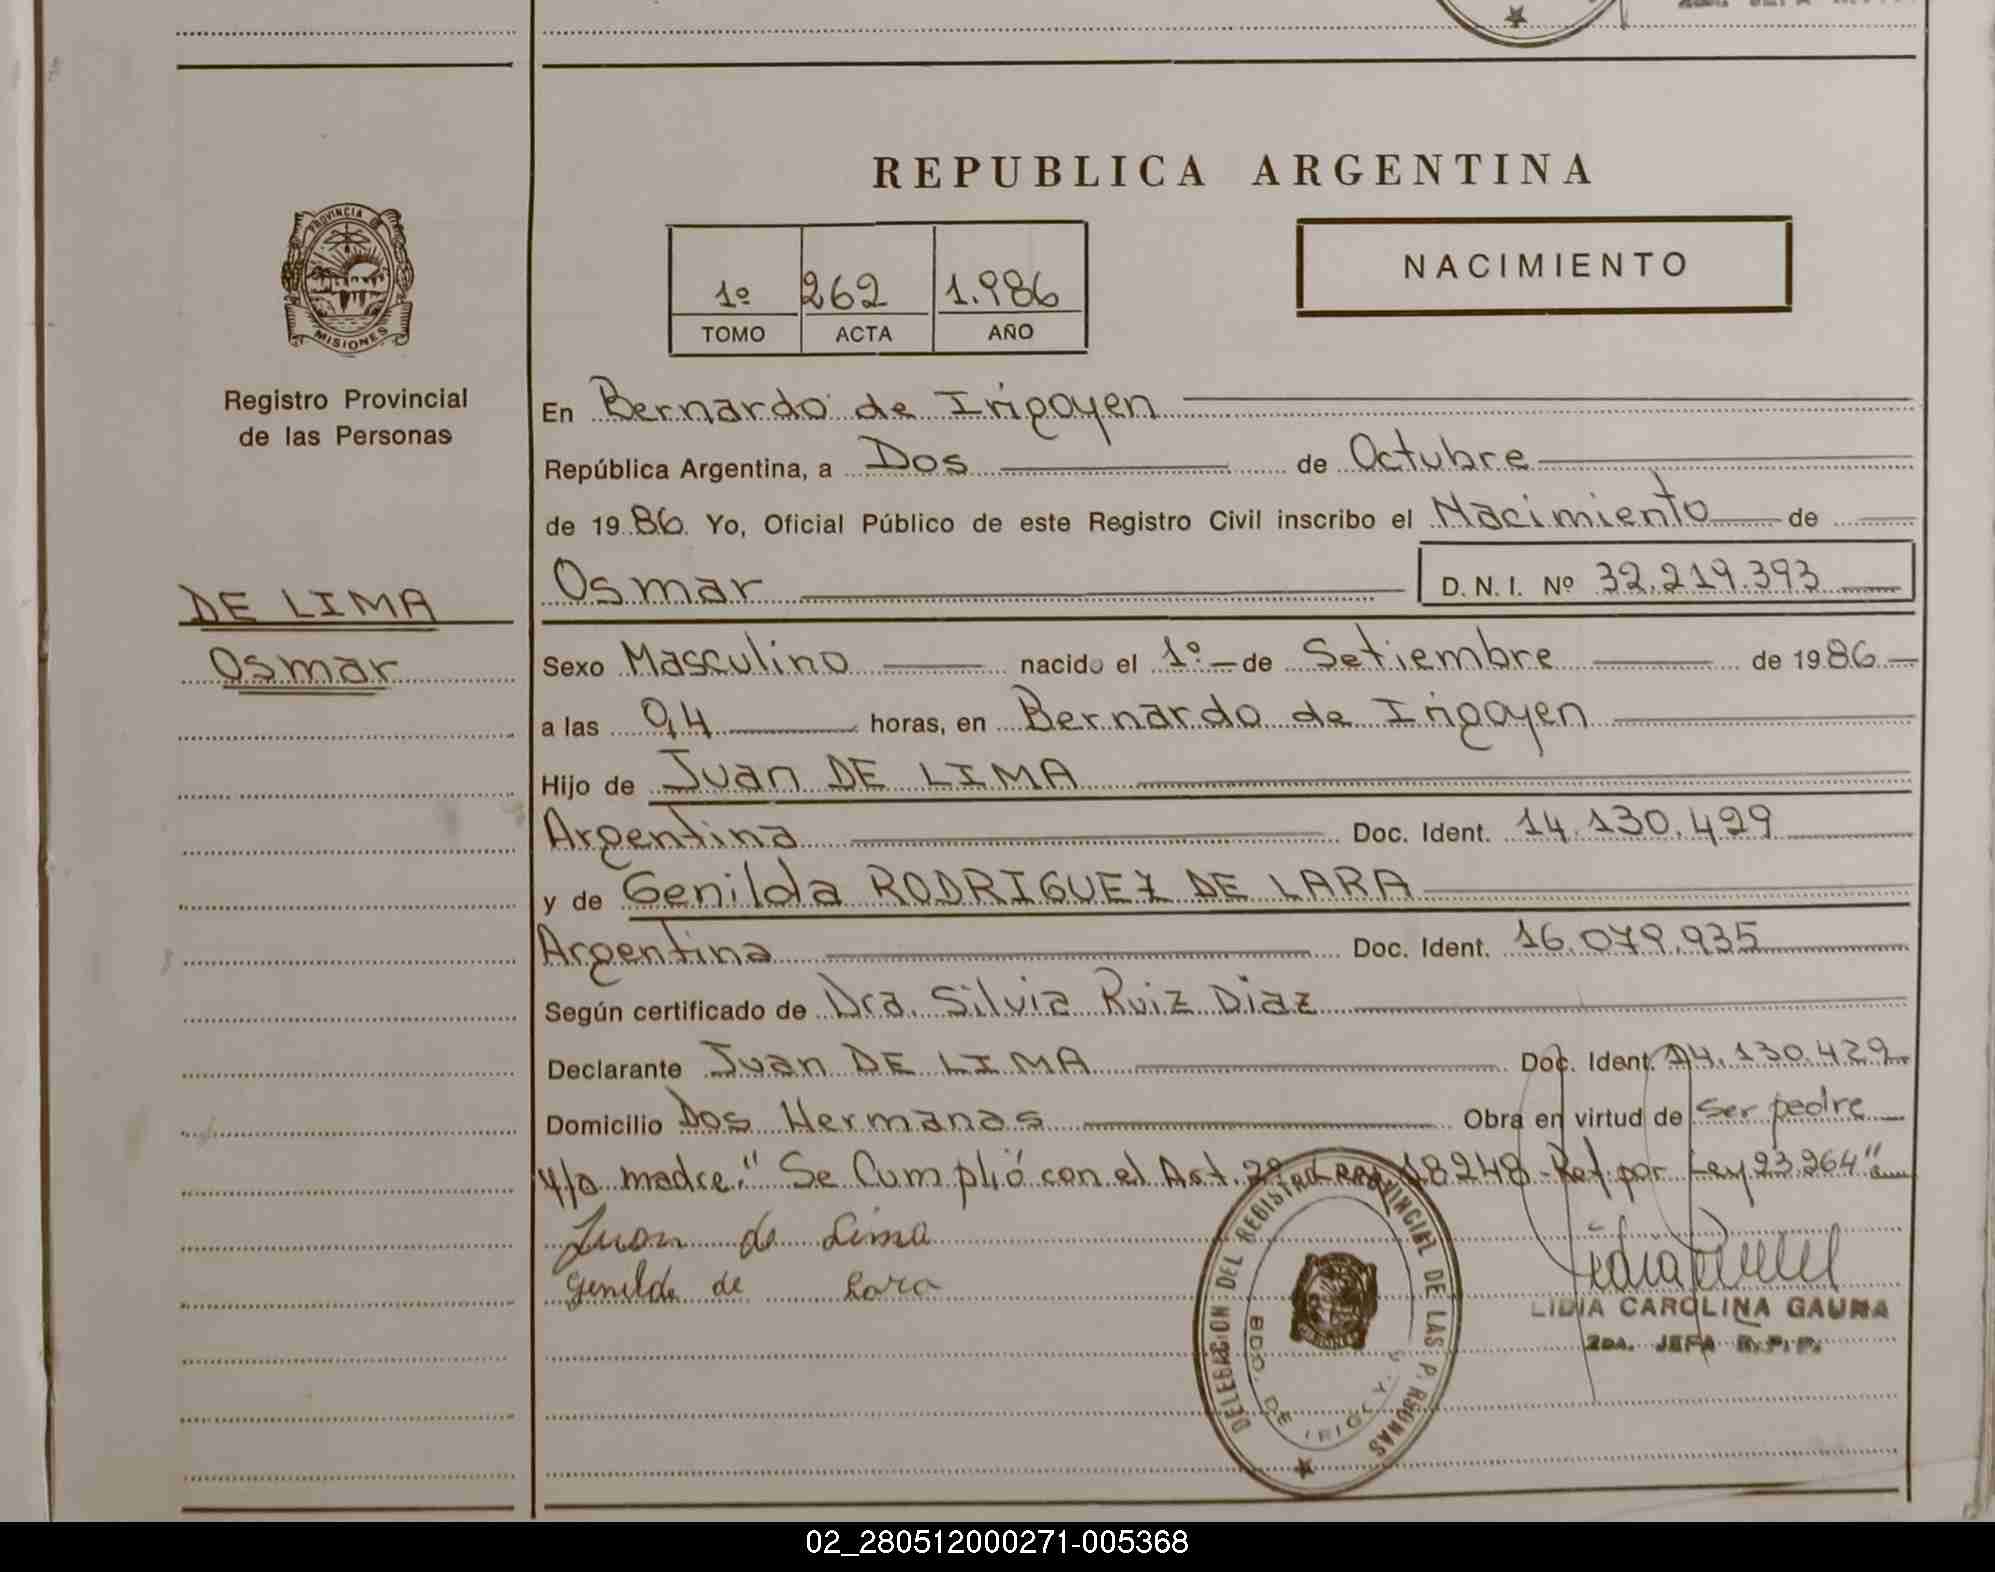 REPUBLICA ARGENTINA
PROVINCIA DE
MISIONES
Registro Provincial
de las Personas
DE LIMA
Osmar
1º 262 1.986
TOMO ACTA AÑO
NACIMIENTO
En Bernardo de Irigoyen
República Argentina, a Dos de Octubre
de 1986. Yo, Oficial Público de este Registro Civil inscribo el Nacimiento de
Osmar D.N.I. Nº 32.219.393
Sexo Masculino nacido el 1º de Setiembre de 1986
a las 04 horas, en Bernardo de Irigoyen
Hijo de Juan DE LIMA
Argentina Doc. Ident. 14.130.429
y de Genilda RODRIGUEZ DE LARA
Argentina Doc. Ident. 16.079.935
Según certificado de Dra. Silvia Ruiz Diaz
Declarante Juan DE LIMA Doc. Ident. 14.130.429
Domicilio Dos Hermanas Obra en virtud de ser padre
y/o madre." Se Cumplió con el Art. 2º Ley 18248 - Ref. por Ley 23.264"
Juan de Lima
Genilda de Lara
DELEGACION DEL REGISTRO PROVINCIAL DE LAS PERSONAS
BDO. DE IRIGOYEN
LIDIA CAROLINA GAUNA
2DA. JEFA R.P.P.
02_280512000271-005368